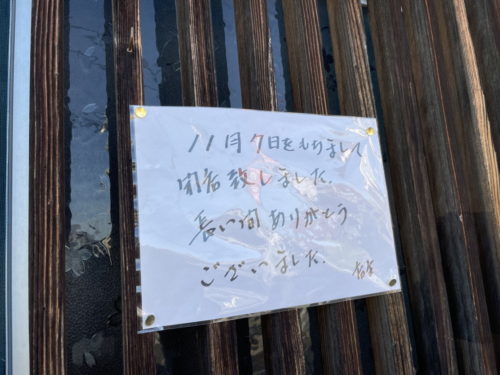 11月7日をもちまして
閉店致しました.
長い間ありがとう
ございました.
店主